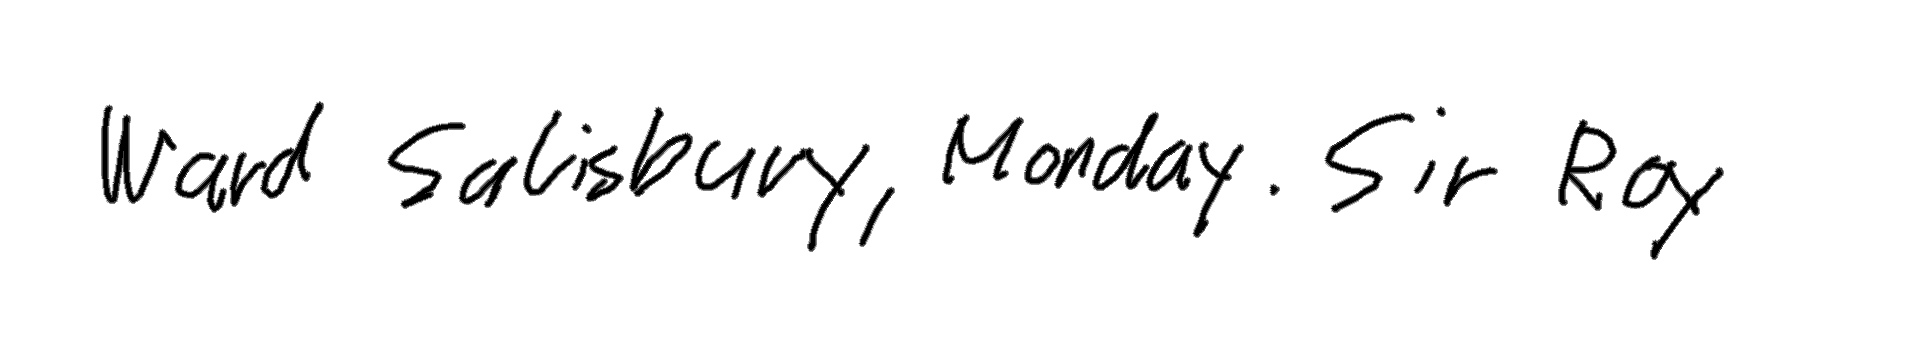 Ward Salisbury, Monday. Sir Roy